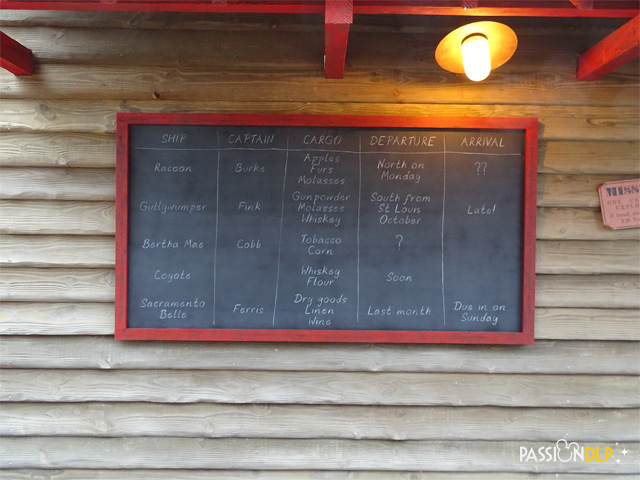 SHIP CAPTAIN CARGO DEPARTURE ARRIVAL
Racoon Burke Apples Furs Molasses North on Monday ??
Gullywumper Fink Gunpowder Molasses Whiskey South from St Louis October Late!
Bertha Mae Cobb Tobacco Corn ?
Coyote Whiskey Flour Soon
Sacramento Belle Ferris Dry goods Linen Wine Last month Due in on Sunday
PASSIONDLP